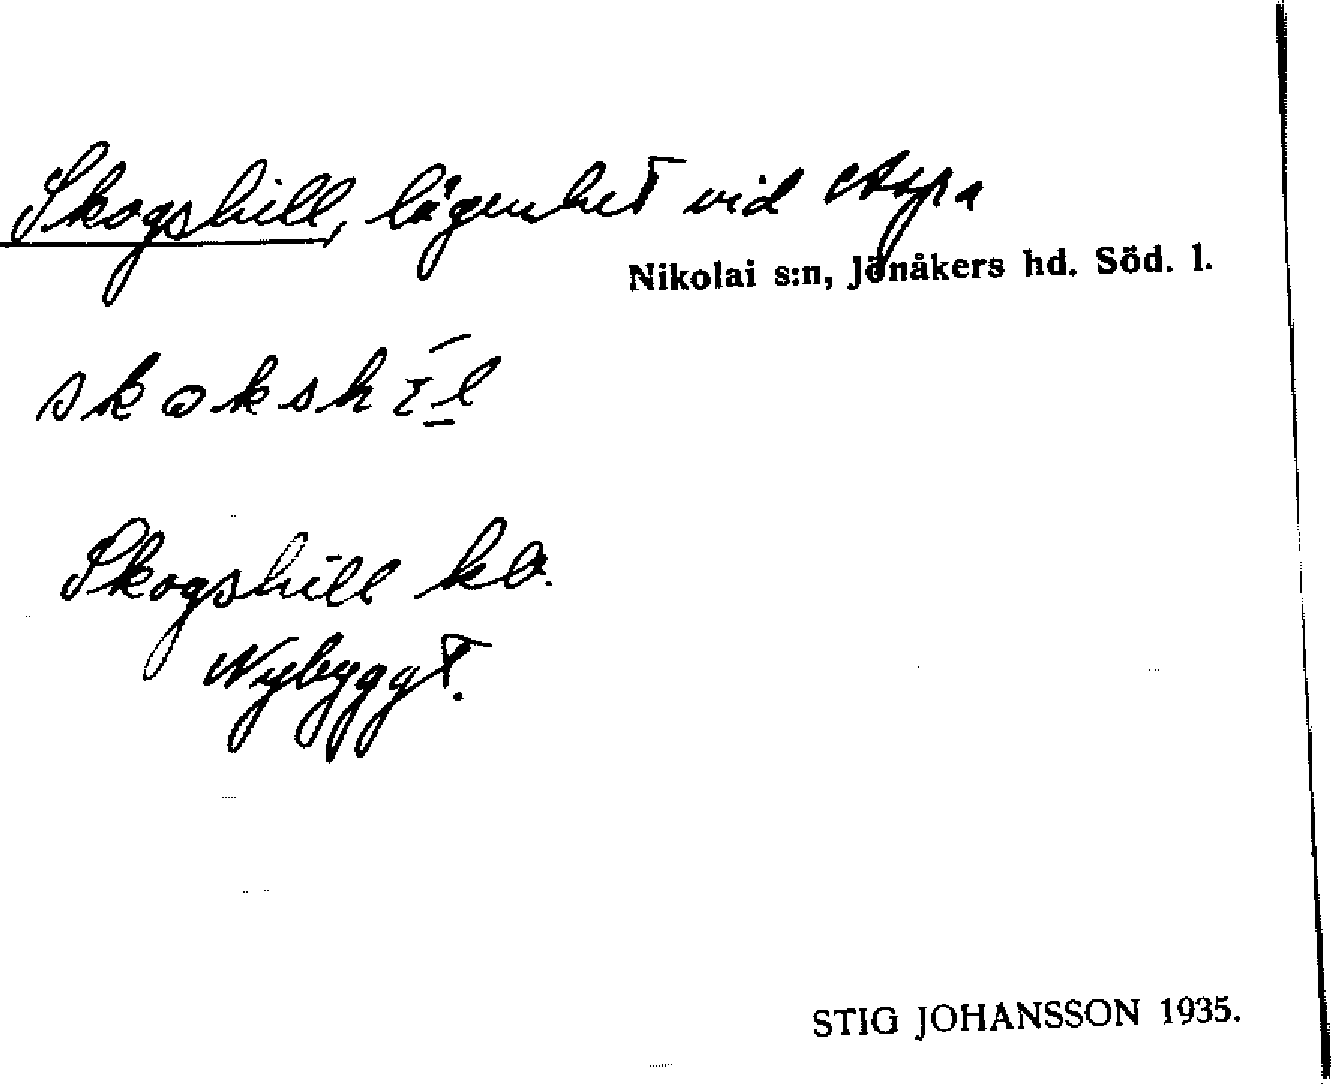 Skogshill, lägenhet vid Aspa
Nikolai s:n, Jönåkers hd. Söd. l.
Skogshill kb.
Nybyggt.
STIG JOHANSSON 1935.